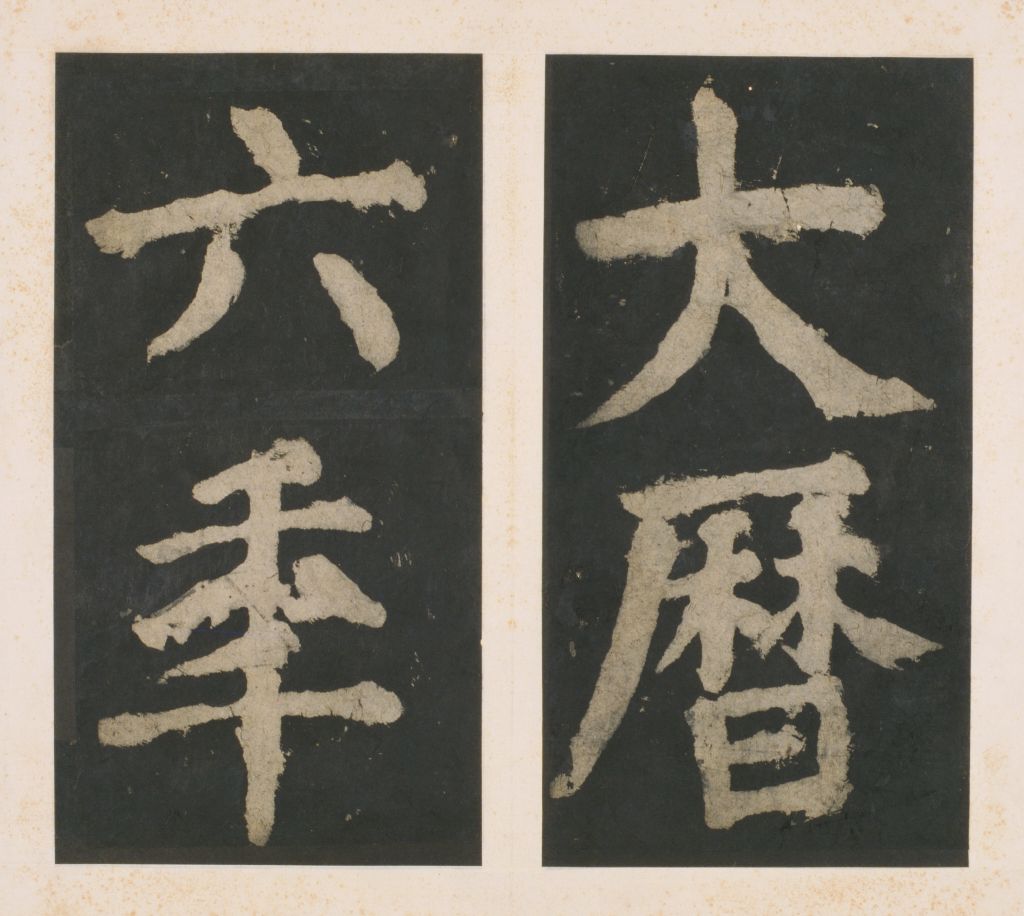 大曆
六秊